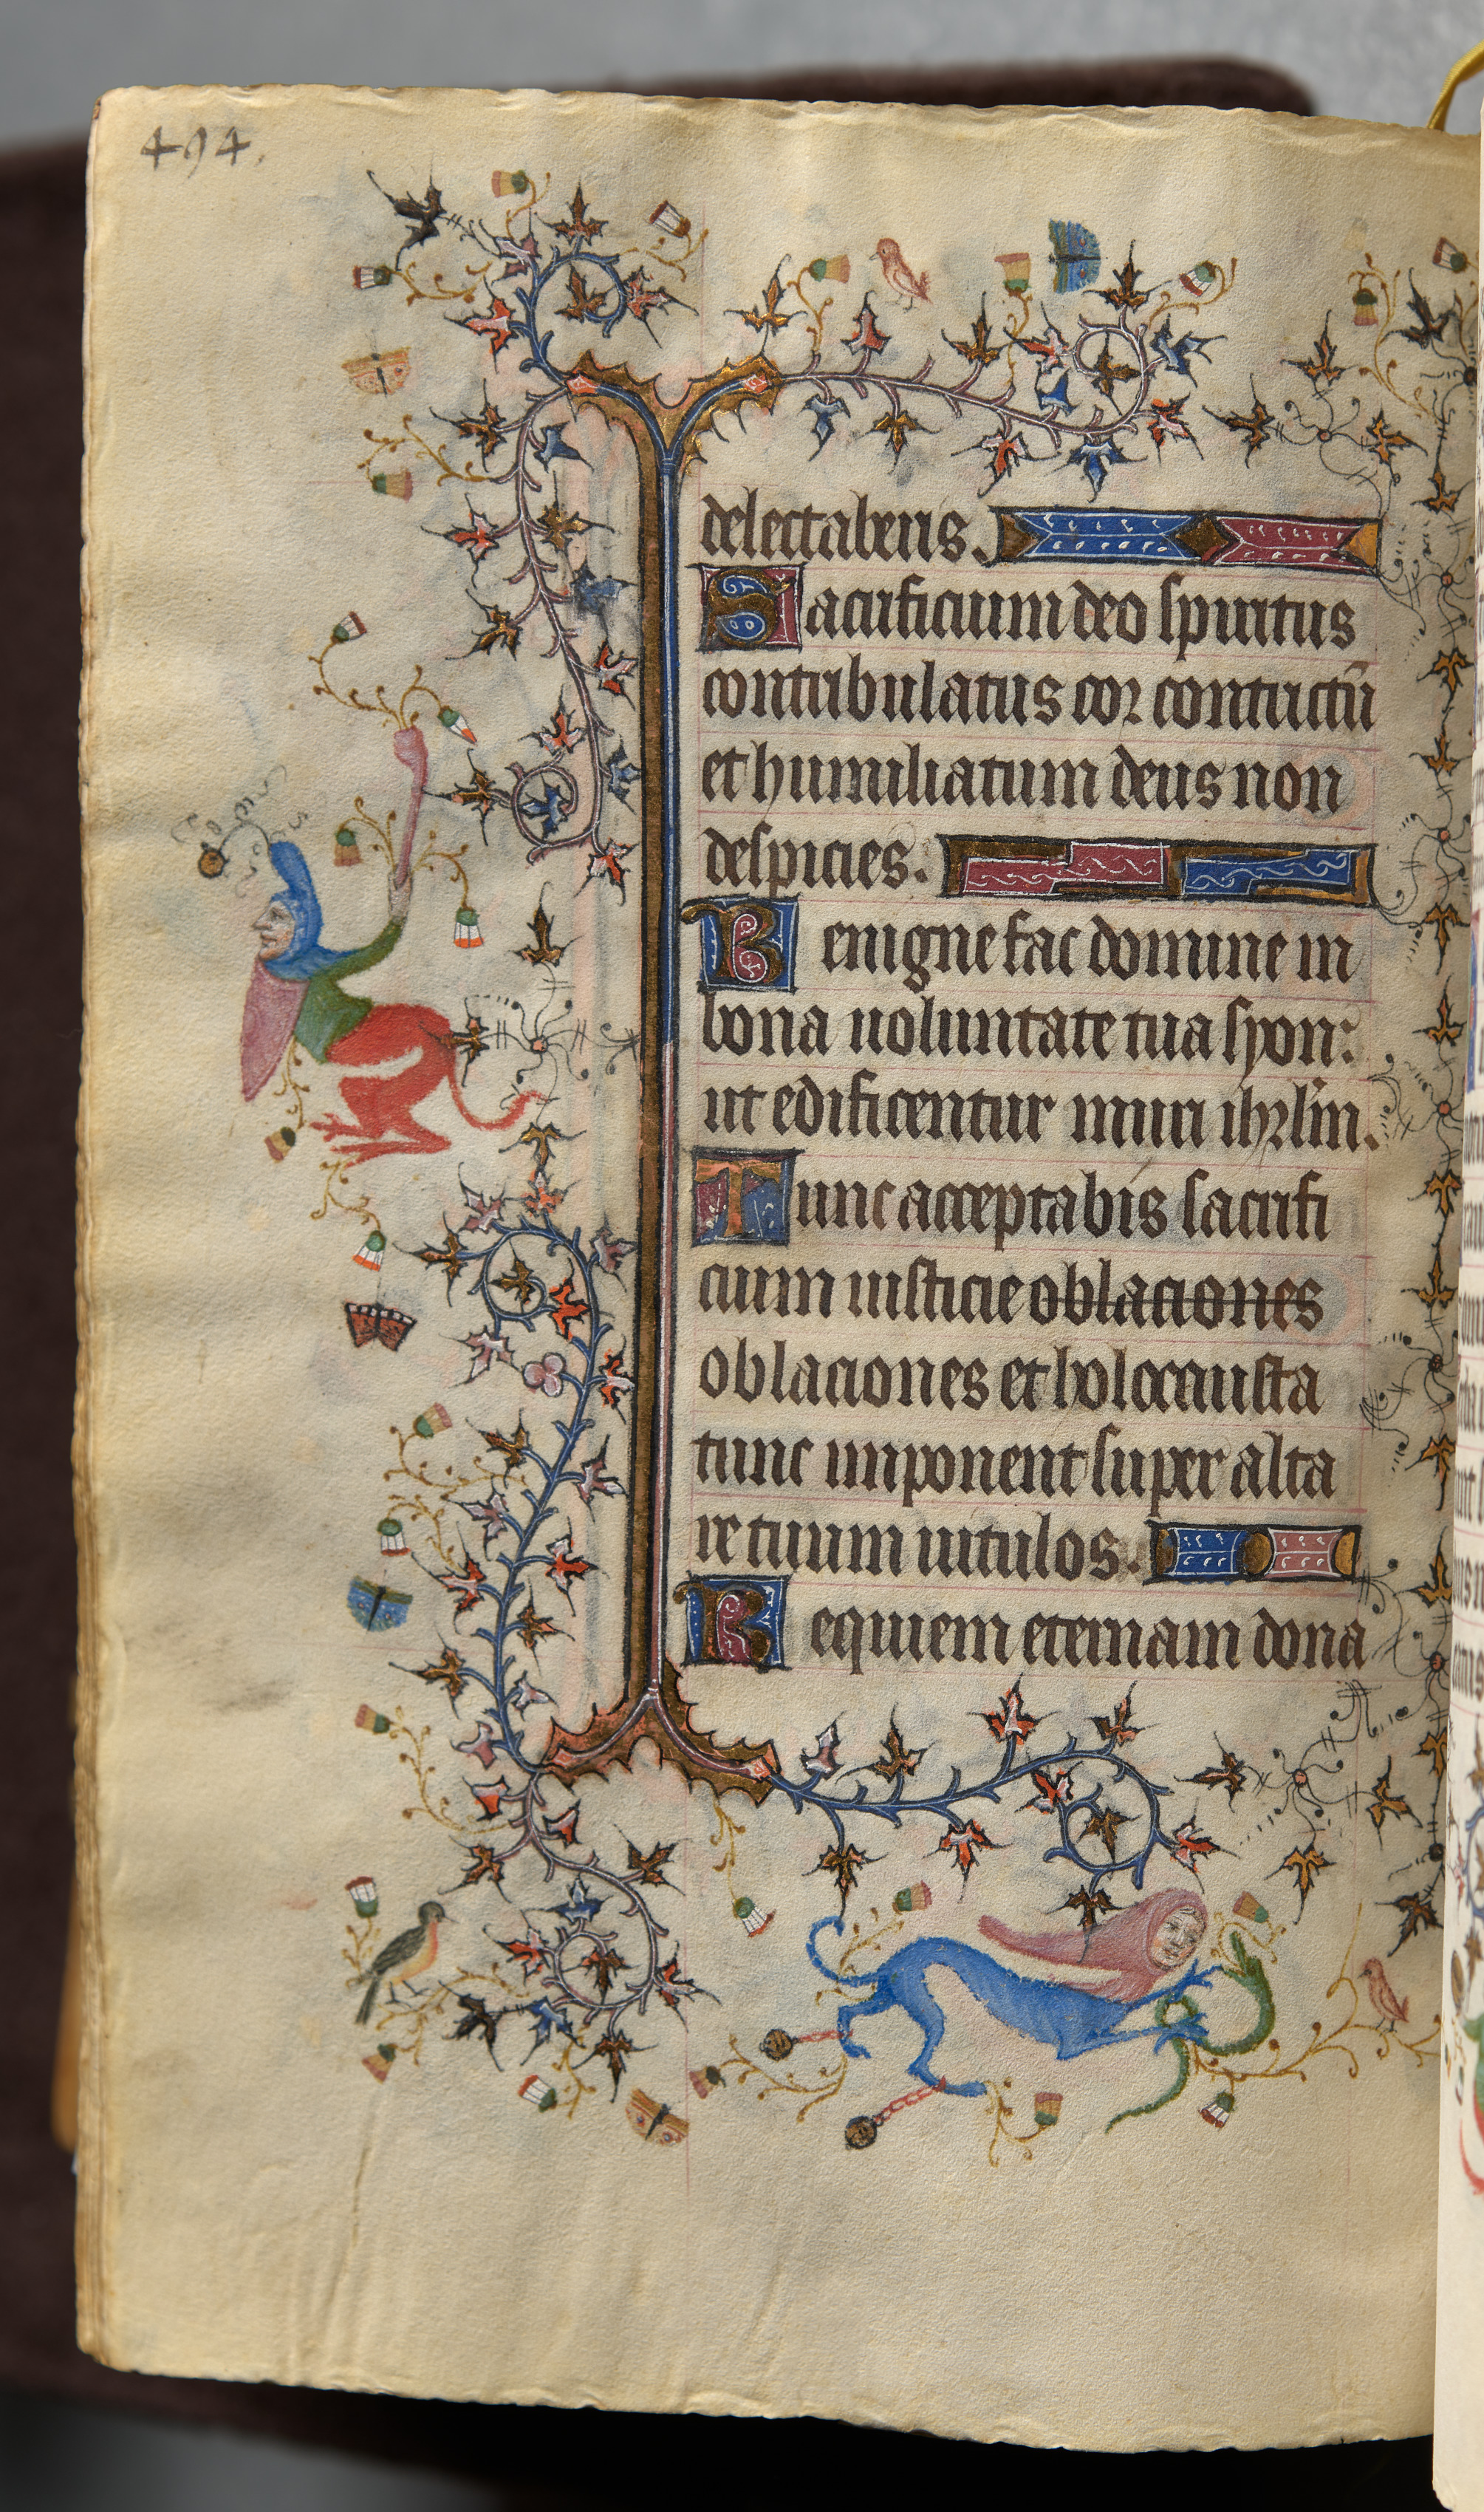 494.
delectaberis.
Sacrificium deo spiritus
contribulatus cor contrictū
et humiliatum deus non
despicies.
Benigne fac domine in
bona uoluntate tua syon:
ut edificentur muri ihrlm̄.
Tunc acceptabis sacrifi
cium iusticie oblaciones
oblaciones et holocausta
tunc imponent super alta
re tuum uitulos.
Requiem eternam dona